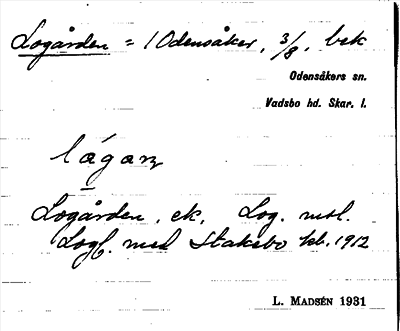 Logården = 1 Odensåker, 3/8, bek
Odensåkers sn.
Vadsbo hd. Skar. l.
lågaṛ
Logården, ek, Log. mtl.
Logf. med Stakebo kb. 1912
L. MADSÉN 1931